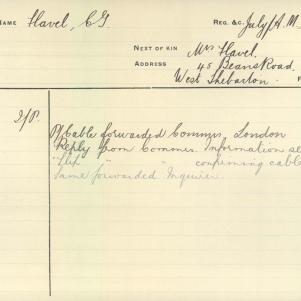 NAME Havel, C G REG. &C. July/A.M.
NEXT OF KIN Mrs Havel
ADDRESS 45 Beans Road,
West Thebarton.
2/8. Cable forwarded Commrs, London
Reply from Commrs. Information se
" " confirming cable
Same forwarded Inquirer.